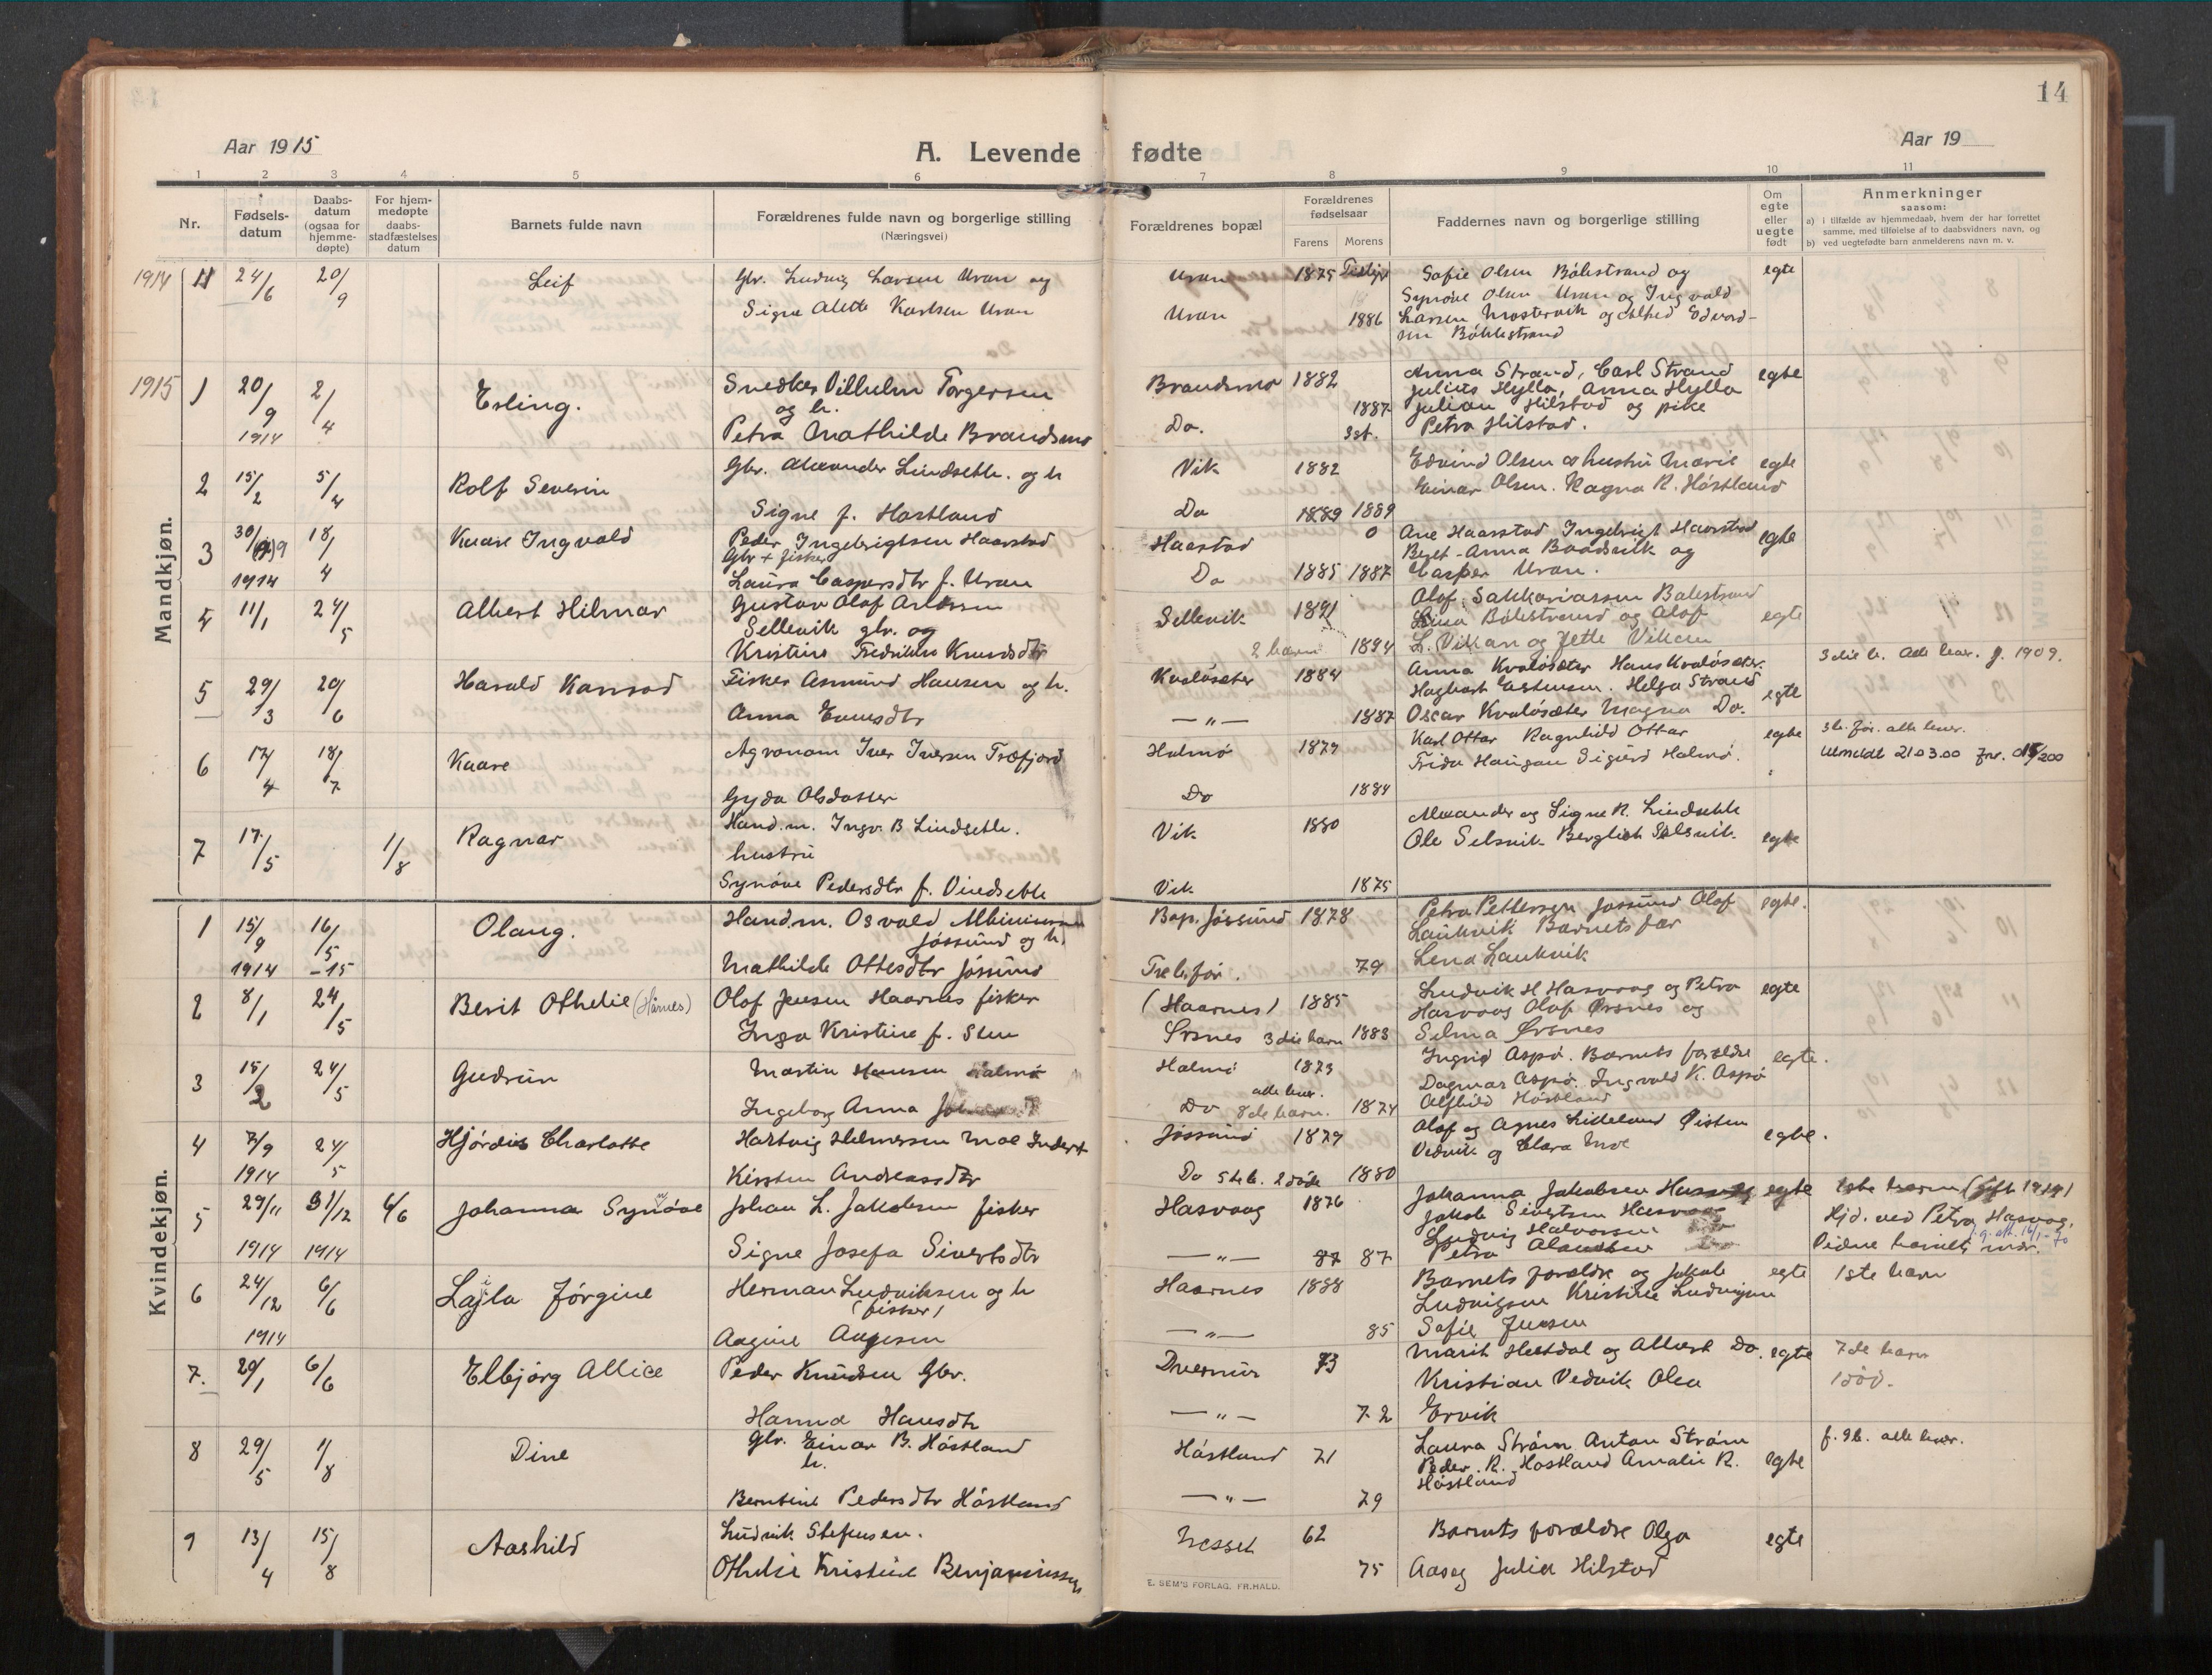 14
Aar 1915
A. Levende fødte
Aar 19
1 2 3 4 5 6 7 8 9 10 11
Nr.
Fødsels-
datum
Daabs-
datum
(ogsaa for
hjemme-
døpte)
For hjem-
medøpte
daabs-
stadfæstelses
datum
Barnets fulde navn
Forældrenes fulde navn og borgerlige stilling
(Næringsvei)
Forældrenes bopæl
Forældrenes
fødselsaar
Farens Morens
Faddernes navn og borgerlige stilling
Om
egte
eller
uegte
født
Anmerkninger
saasom:
a) i tilfælde av hjemmedaab, hvem der har forrettet
samme, med tilføielse af to daabsvidners navn, og
b) ved uegtefødte barn anmelderens navn m. v.
Mandkjøn.
1914 11 24/6 20/9 Leif
Gbr. Ludvig Larsen Uran og
Signe Alette Karlsen Uran
Uran 1875
Uran 1886
Sofie Olsen Bölestrand og
Synöve Olsen Uran og Ingvald
Larsen Mostervik og Edvard-
sen Böhlestrand
egte
1915 1 20/9 1914 2/4 Erling.
Snedker Vilhelm Torgersen
og h.
Petra Mathilde Brandsmo
Brandsmo 1882
Do. 1887
3st.
Anna Strand, Carl Strand
Julius Hylla, Anna Hylla
Julian Hilstad og pike
Petra Hilstad.
egte
2 15/2 5/4 Rolf Severin
Gbr. Alexander Lindseth. og h
Signe f. Hastland
Vik 1882
Do 1889 1889
Edvind Olsen og hustru Marie
Einar Olsen. Ragna R. Höstland
egte
3 30/9 1914 18/4 Kaare Ingvald
Peder Ingebrigtsen Haarstad
Gbr + fisker
Laura Caspersdtr f. Uran
Haastad 0
Do 1885 1887
Ane Haarstad Ingebrigt Haarstad
Beret-Anna Baadsvik og
Casper Uran.
egte
4 11/1 24/5 Albert Hilmar
Gustav Olaf
Sellevik gbr. og
Kristine Fredrikke Knudsdtr
Sellevik 1891
2 barn 1894
Olof Sakkariassen Balestrand
Lina Bölestrand og Olof
L. Vikan og Jette Vikan
egte
5 29/3 20/6 Harald
Fisker Asmund Hansen og h.
Anna
Kvalösæter 1884
— " — 1887
Anna Kvalösæter Hans Kvalösæter
Hagbart Helga Strand
Oscar Kvalösæter Magna Do.
egte
3die b. f. 1909.
6 17/4 18/7 Kaare
Agronom Iver Iversen Træfjord
Gyda Olsdatter
Halmö 1879
Do 1884
Karl Ottar Ragnhild Ottar
Frida Haugan Sigurd Halmö.
egte
alle lever.
Utmeldt 210300
7 17/5 1/8 Ragnar
Hand.m. Ingv. B Lindseth.
hustru
Synöve Pedersdtr f. Vindseth
Vik 1880
Vik 1875
Alexander og Signe R. Lindseth
Ole Selsvik Bergliot Selsvik
egte
Kvindekjøn.
1 15/9 1914 16/5 -15 Olaug.
Hand.m. Osvald
Jössund og h.
Mathilde Ottesdtr Jössund
Bop. Jössund 1878
79
Petra Pettersen Jossund Olaf
Laukvik Barnets far
Lena Laukvik
egte.
2 8/1 24/5 Berit Othelie (Hårnes)
Olaf Jensen Haarnes fisker
Inga Kristine f. Sten
(Haarnes) 1885
3die barn 1883
Ludvik H Hasvaag og Petra
Hasvaag Olaf Örsnes og
Selma Örsnes
egte
3 15/2 24/5 Gudrun
Martin Hansen Halmö
Ingeborg Anna
Halmö 1873
alle lever.
Do 8de barn. 1874
Ingrid Aspö. Barnets forældre
Dagmar Aspö. Ingvald K. Aspö
Alfhild Höstland
egte.
4 7/9 1914 24/5 Hjördis Charlotte
Hartvig Helmersen Moe
Kirsten Andreasdtr
Jössund 1879
Do 5te b. 2 döde 1880
Olaf og Agnes Lideland Øisten
Vedvik og Clara Moe
egte.
5 29/11 1914 31/12 1914 6/6 Johanna Synöve
Johan L. Jakobsen fisker
Signe Josefa Sivertsdtr
Hasvaag 1876
— " — 87 87
Johanna Jakobsen Hasvaag
Jakob Sivertsen Hasvaag
Ludvig Halvorsen
Petra
egte
1ste barn (gift 1914)
Hjd. ved Petra Hasvag.
Vidne barnets mor.
6 24/12 1914 6/6 Lajla Jörgine
Herman Ludviksen og h
(fisker)
Aagine Aagesen
Haarnes 1888
— " — 85
Barnets forældre og Jakob
Ludvigsen Kristine Ludvigsen
Sofie Jensen
egte
1ste barn
7. 20/1 6/6 Elbjørg Allice
Peder Knudsen Gbr.
Hanna Hansdtr
Duernur 73
— " — 72
Marit Hestdal og Albert Do.
Kristian Vedvik Olea
Ervik
egte
7de barn
1 död.
8 29/5 1/8 Dine
Gbr. Einar B. Höstland
h.
Berntine Pedersdtr Höstland
Höstland 71
— " — 79
Laura Ström Anton Ström
Peder R. Hostland Amalie R.
Höstland
egte
f. 9b. alle lever.
9 13/4 15/8 Aashild
Ludvik Stefensen.
Othelie Kristine Benjaminsen
Nesset 62
75
Barnets forældre Olga
Aaseg Julia Hilstad
egte
E. SEM'S FORLAG, FR.HALD.